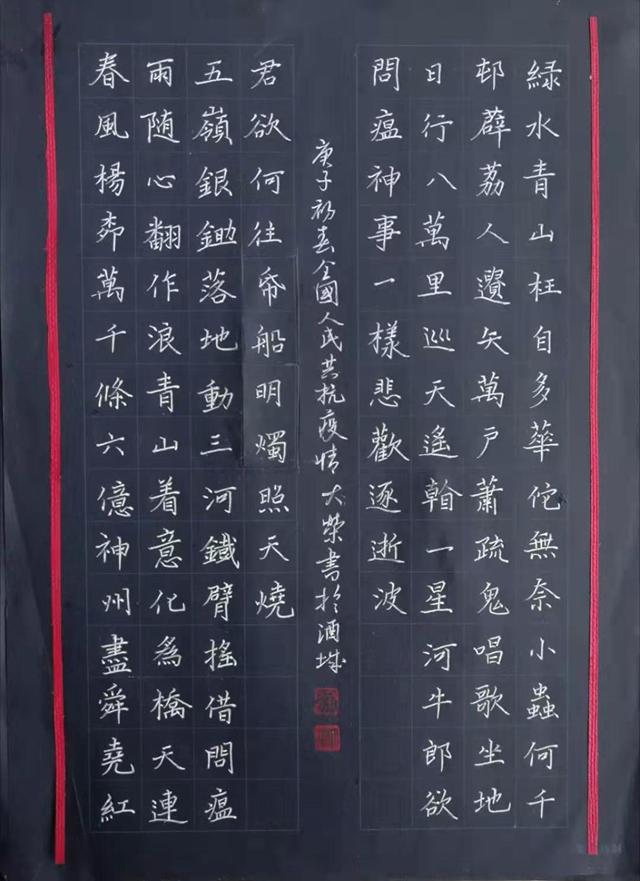 綠水青山枉自多華佗無奈小蟲何千
邨薜荔人遺矢萬戶蕭疏鬼唱歌坐地
日行八萬里巡天遙翰一星河牛郎欲
問瘟神事一樣悲歡逐逝波
春風楊桺萬千條六億神州盡舜堯紅
雨随心翻作浪青山着意化為橋天連
五嶺銀鋤落地動三河鐵臂搖借問瘟
君欲何往帋船明燭照天燒
庚子初春全國人民共抗疫情大榮書於酒城